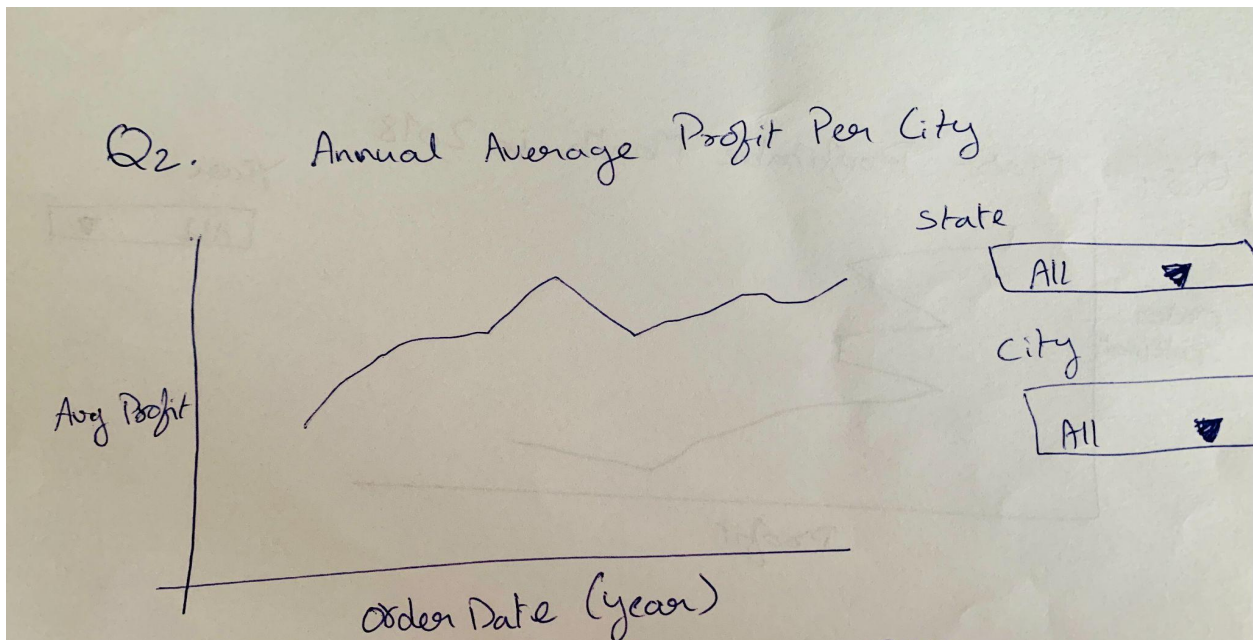 Q2. Annual Average Profit Per City
State
All
City
All
Avg Profit
Order Date (year)